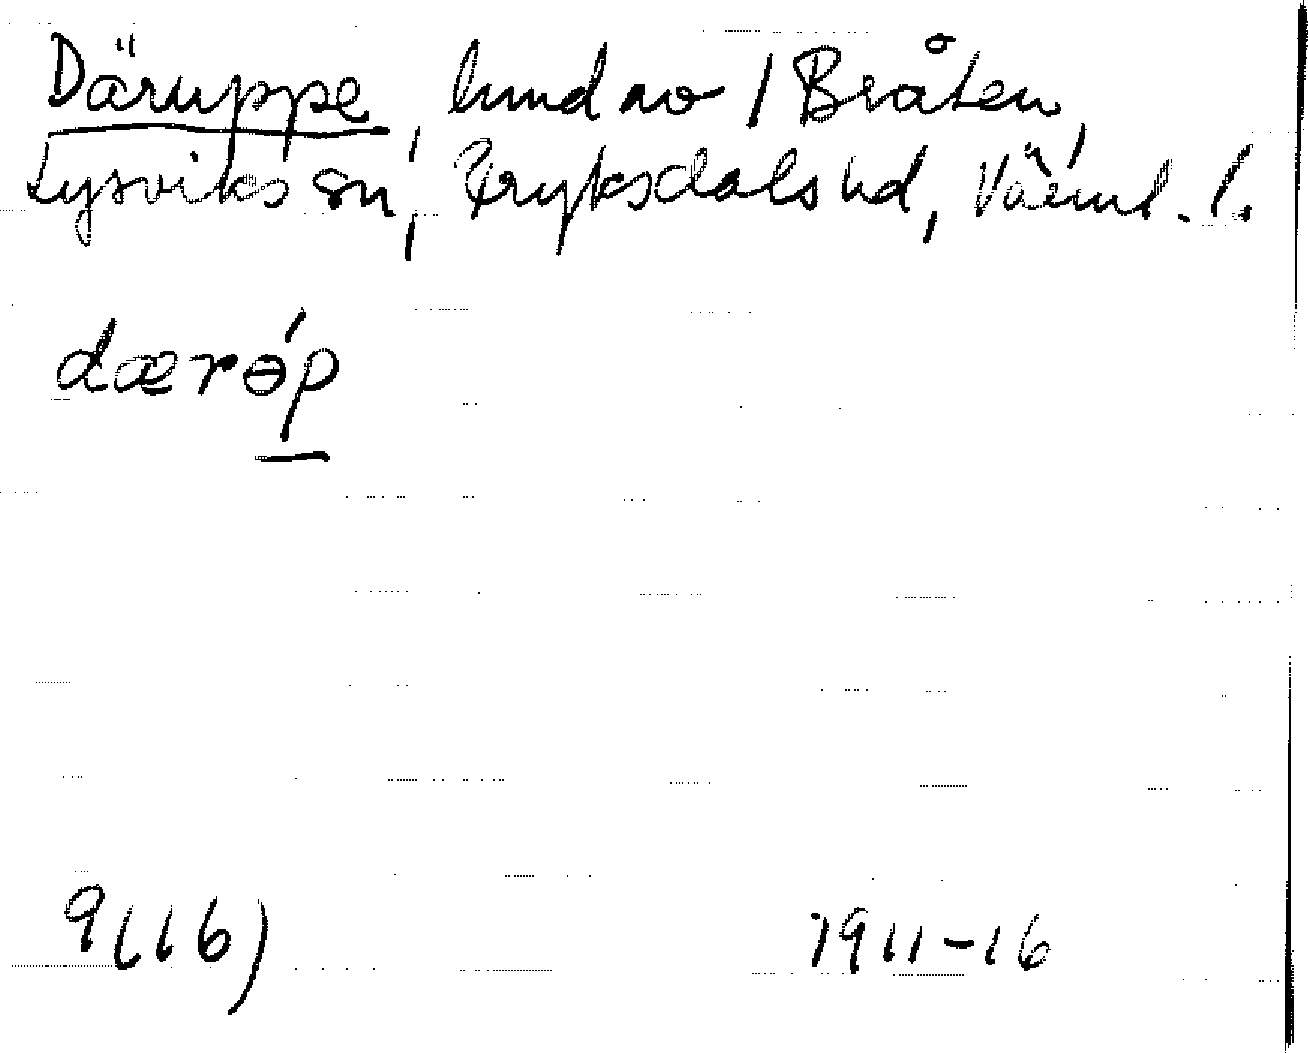 Däruppe, hmd av / Bråten,
Lysviks sn, Fryksdals hd, Värml. l.
dærǝ́p
9(16)
1911-16